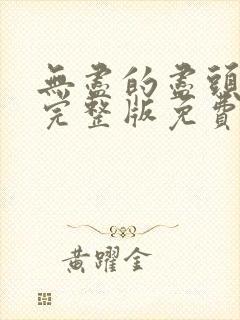 無盡的盡頭
完整版免費
黃躍金